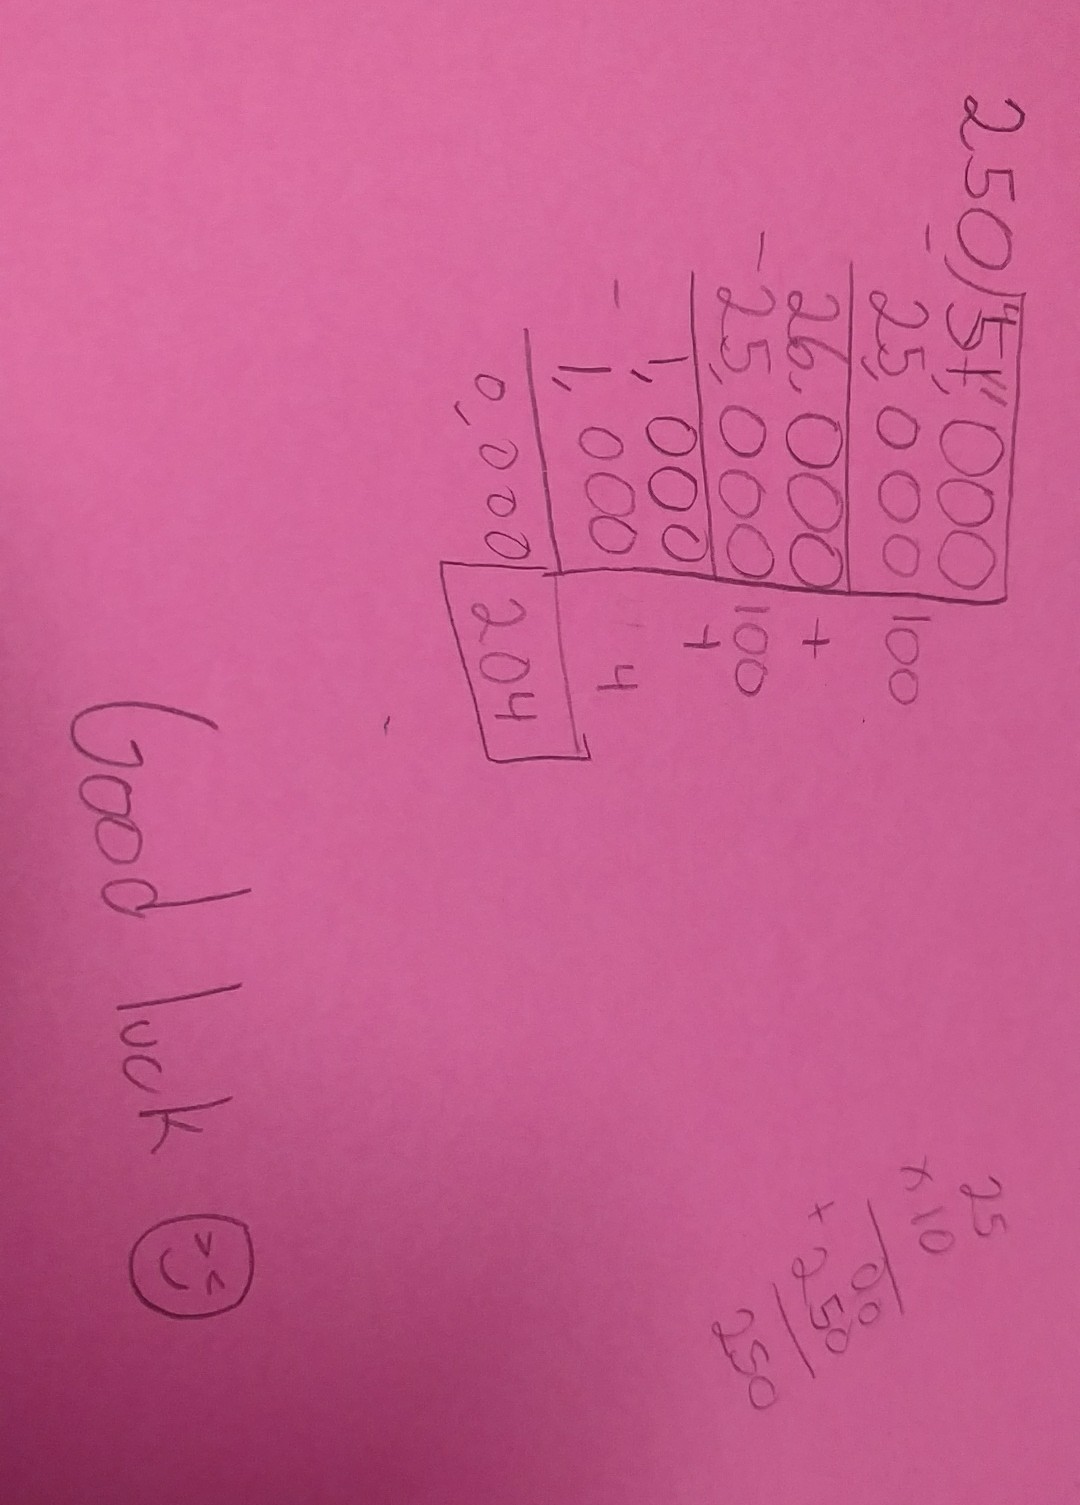 250)51,000
- 25,000 100
26,000 +
- 25,000 100
1,000 +
- 1,000 4
0,000 204
25
x 10
00
+ 250
250
Good luck